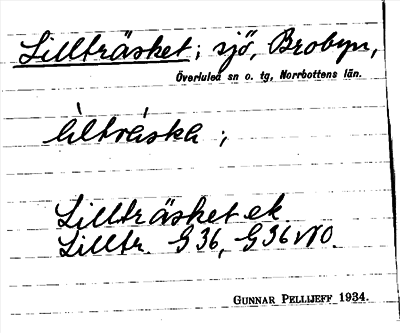 Lillträsket; sjö, Brobyn,
Överluleå sn o. tg, Norrbottens län.
liltráska;
Lillträsket ek.
Lilltr. G36, G36 NO.
GUNNAR PELLIJEFF 1934.